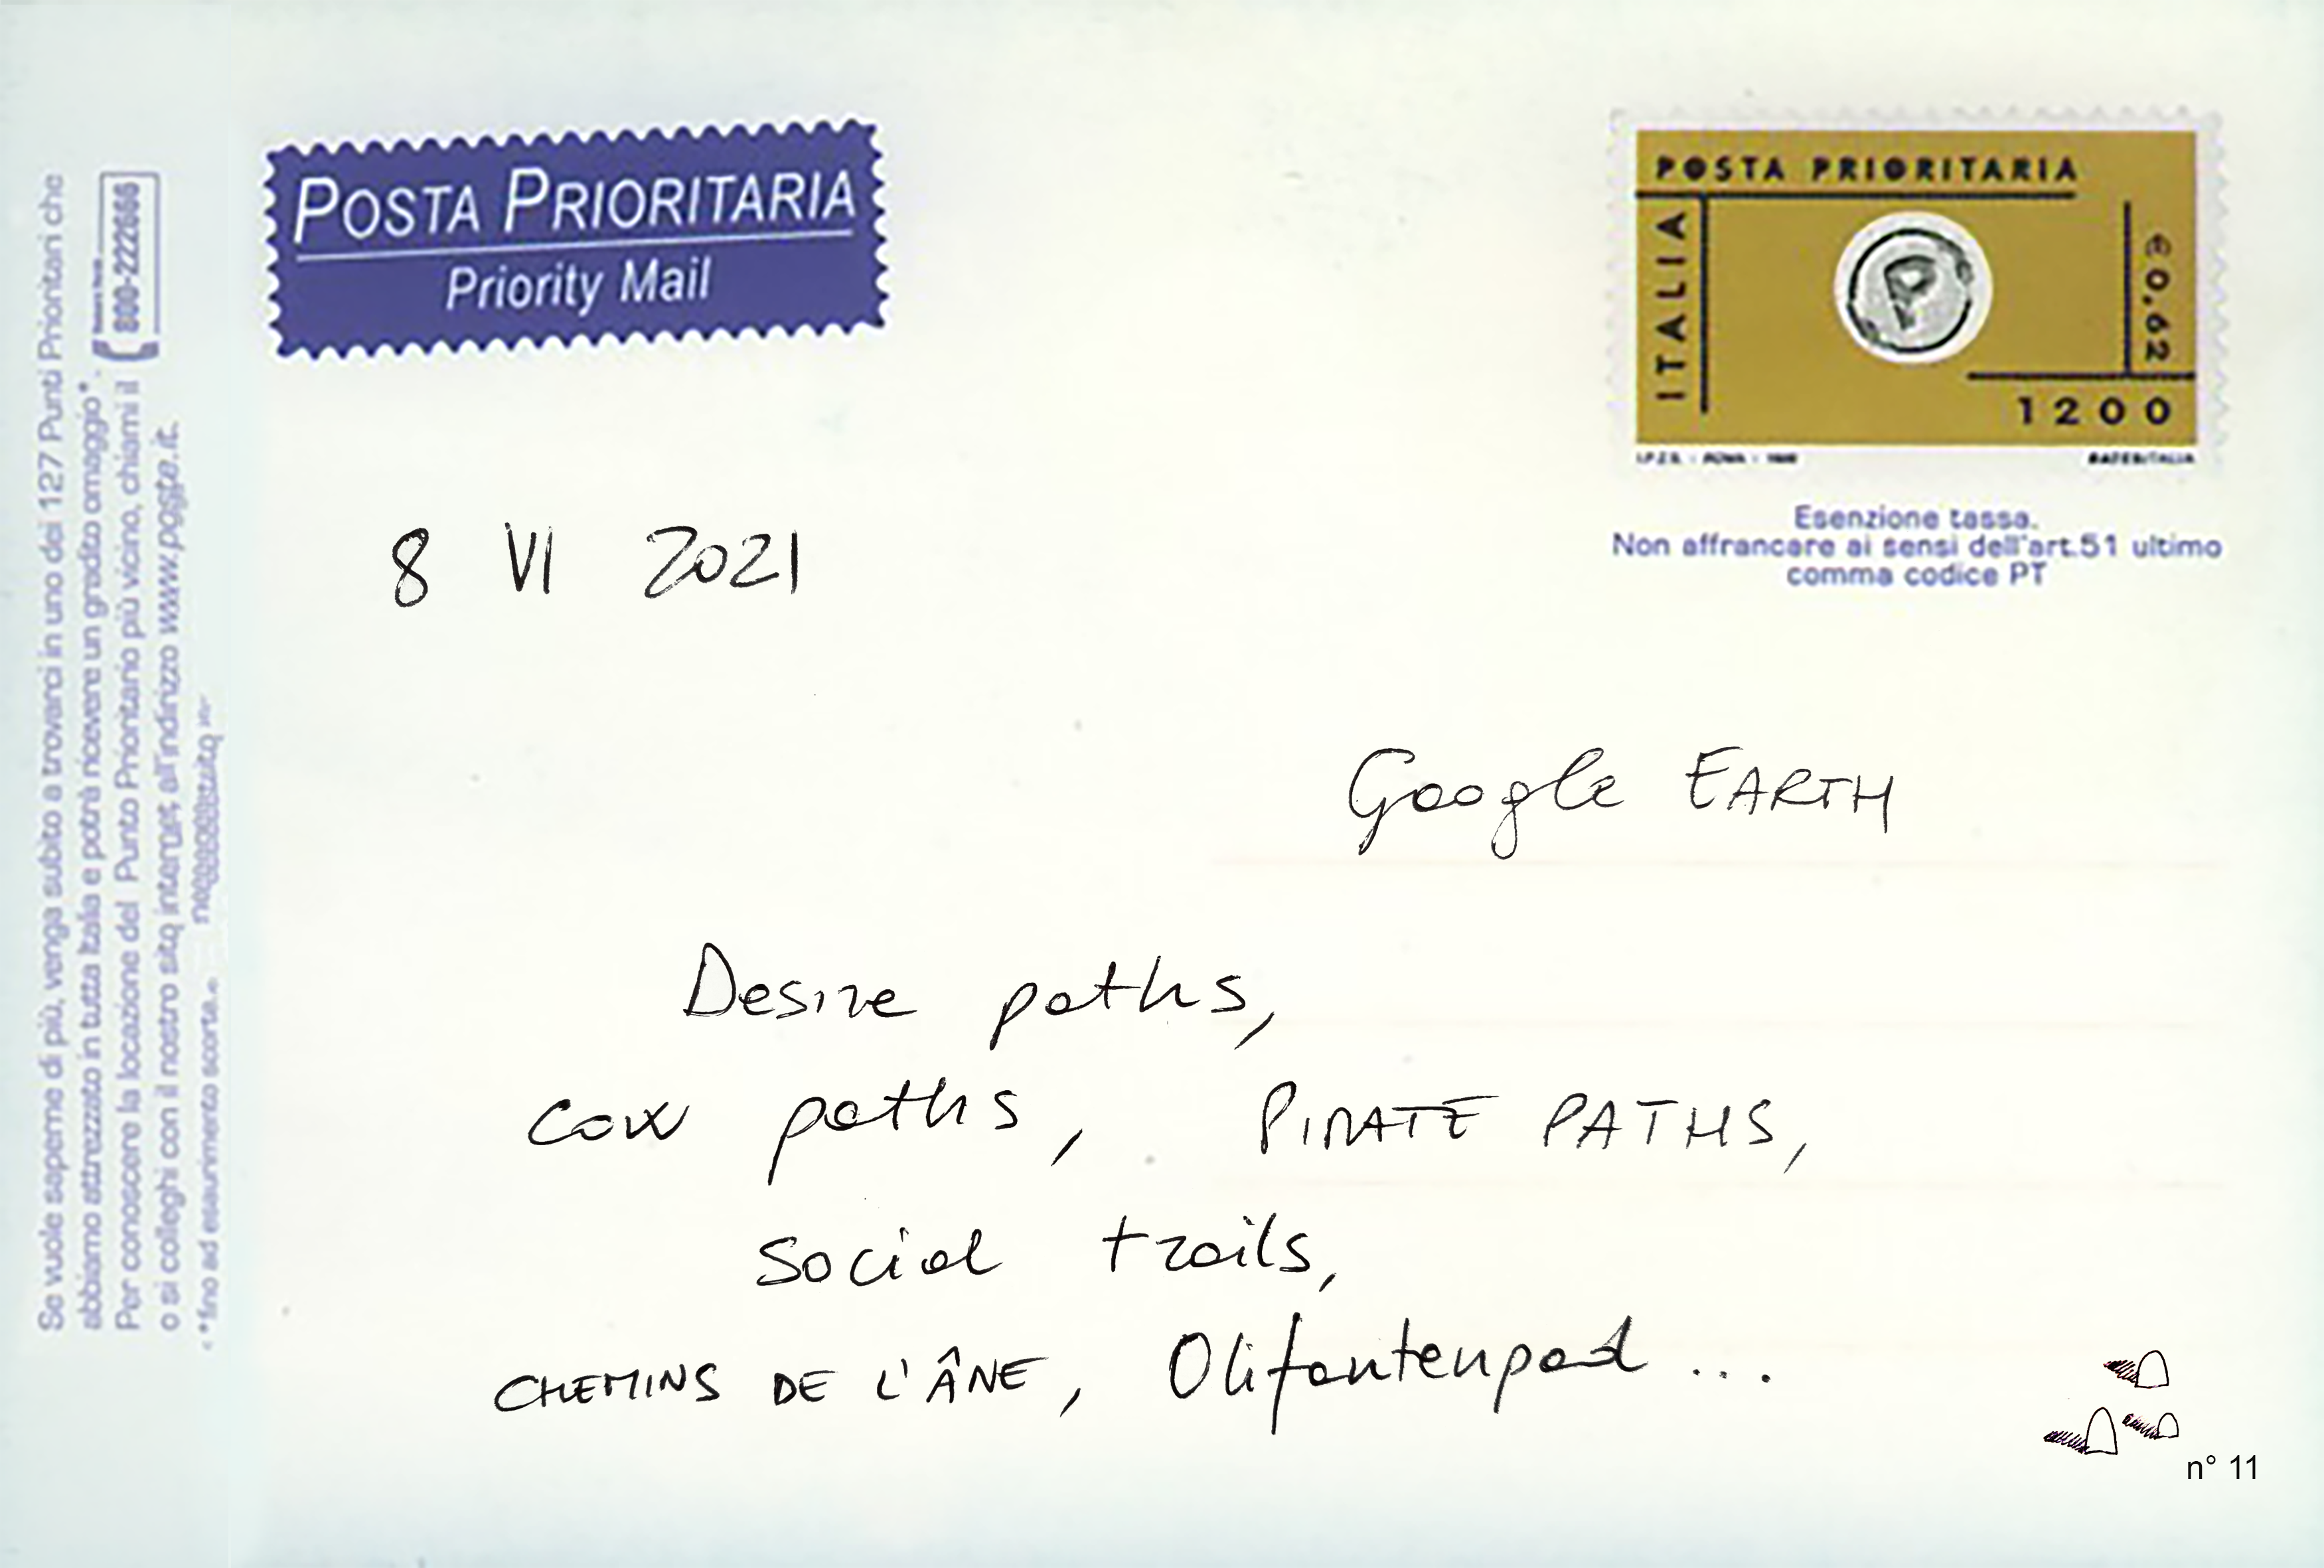 POSTA PRIORITARIA
Priority Mail
POSTA PRIORITARIA
ITALIA
€ 0,62
1200
I.P.Z.S. - ROMA -
Esenzione tassa.
Non affrancare ai sensi dell'art.51 ultimo
comma codice PT
8 VI 2021
Google EARTH
Desire paths,
cow paths, PIRATE PATHS,
social trails,
CHEMINS DE L'ÂNE, Olifantenpad ...
n° 11
Se vuole saperne di più, venga subito a trovarci in uno dei 127 Punti Prioritari che
abbiamo attrezzato in tutta Italia e potrà ricevere un gradito omaggio*.
Per conoscere la locazione del Punto Prioritario più vicino, chiami il 800-222666
o si colleghi con il nostro sito internet all'indirizzo www.poste.it.
*fino ad esaurimento scorte.